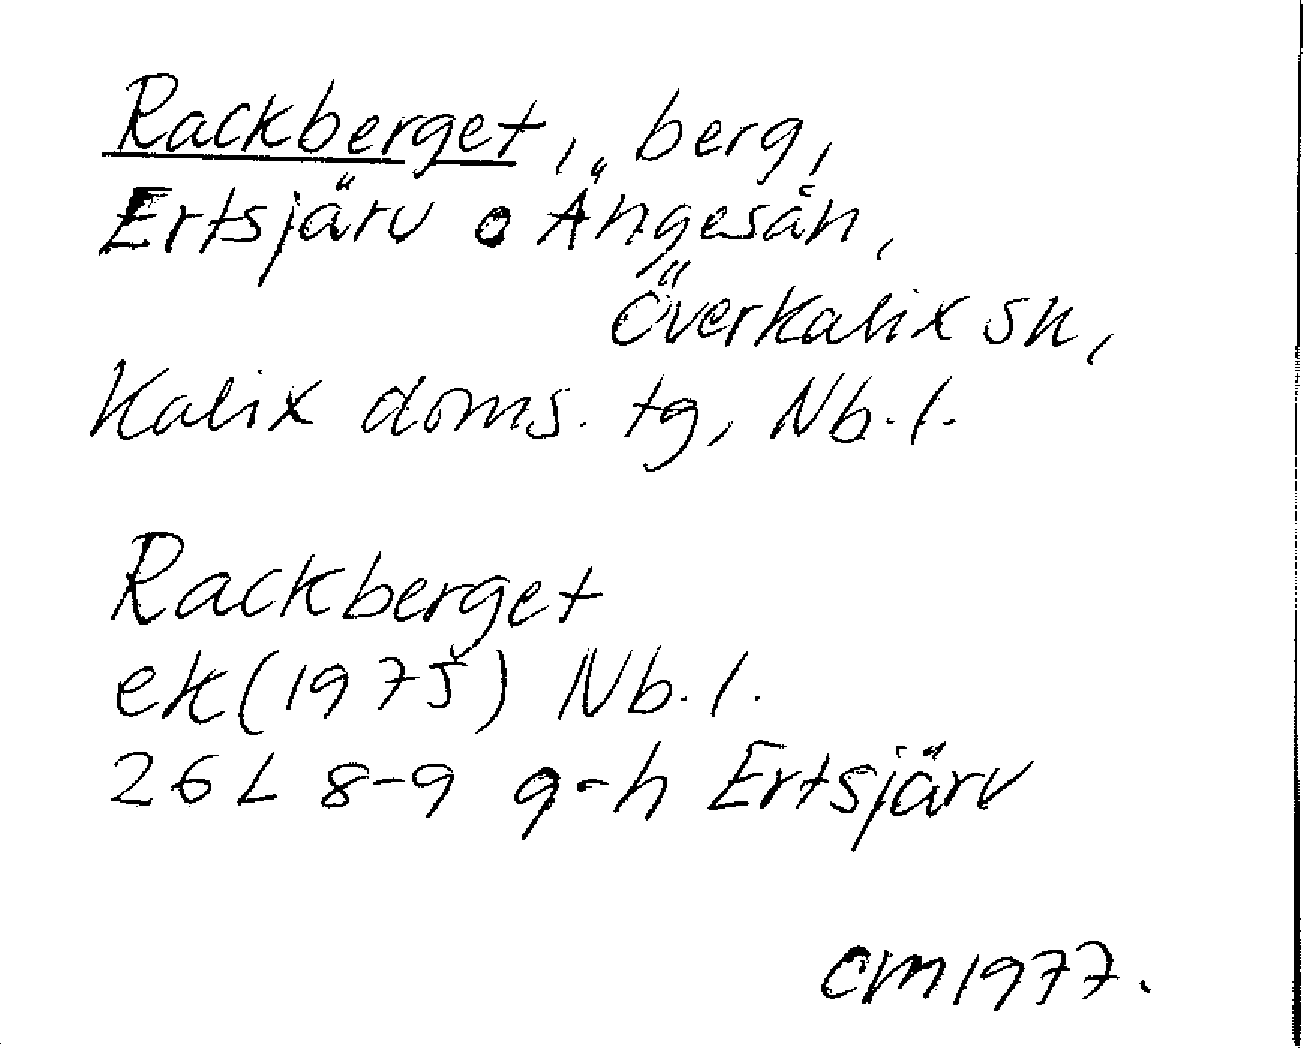 Rackberget, berg,
Ertsjärv o Ängesån,
Överkalix sn,
Kalix doms. tg, Nb. l.
Rackberget
ek (1975) Nb. l.
26 L 8-9 g-h Ertsjärv
CM 1977.